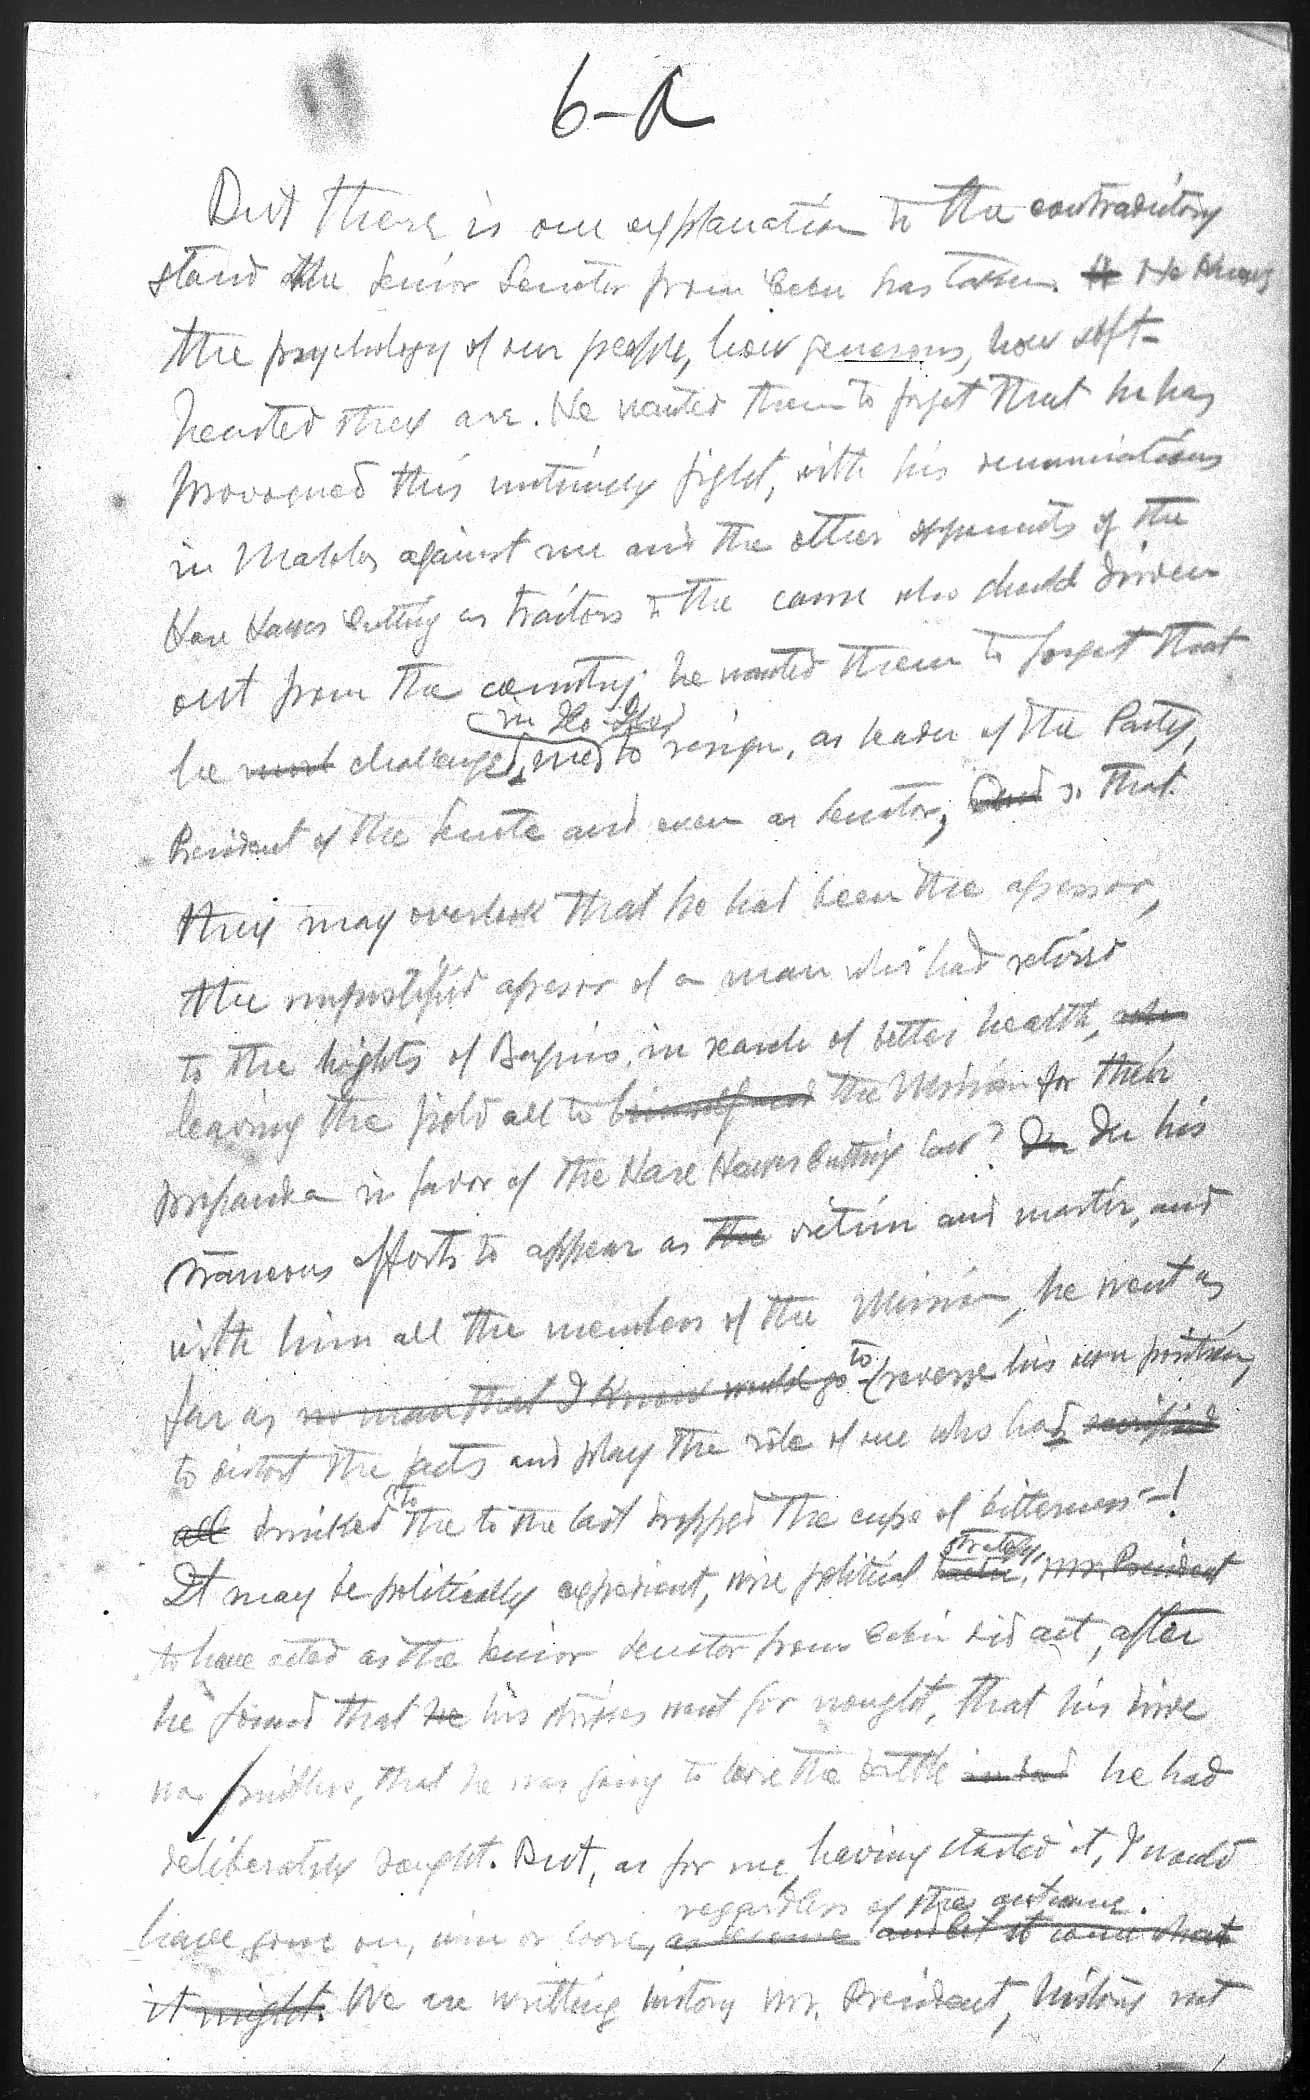 6-A
But there is one explanation to the contradictory
stand the Senior Senator from Cebu has taken. It He knows
the psychology of our people, how generous, how soft-
hearted they are. He wanted them to forget that he has
provoqued this untimely fight, with his
in Malolos against me and the other opponents of the
Hare Hawes Cutting as traitors to the cause who should driven
out from the country; he wanted them to forget that
in Ilo-Ilo
he challenged me to resign, as leader of the Party,
President of the Senate and even as Senator; and so that
they may overlook that he had been the agressor,
the unjustified agresor of a man who had retired
to the hights of Baguio, in search of better health, who
leaving the field all to the Mission for their
propaganda in favor of the Hare Hawes Cutting law? In In his
straneous efforts to appear as the victim and martir, and
with him all the members of the Mission, he went as
far as no man that I know would go to reverse his own position,
to distort the facts and play the role of one who had sacrified
to
all drinked the to the last dropped the cups of bitterness—!
strategy,
It may be politically expedient, wise political Mr. President
to have acted as the Senior Senator from Cebu did act, after
he found that he his went for nought, that his drive
was fruitless, that he was going to loose the battle he had
deliberately sought. But, as for me, having started it, I would
regardless of the outcome.
have gone on, win or loose, and let it come what
it might. We are writting history Mr. President, history not